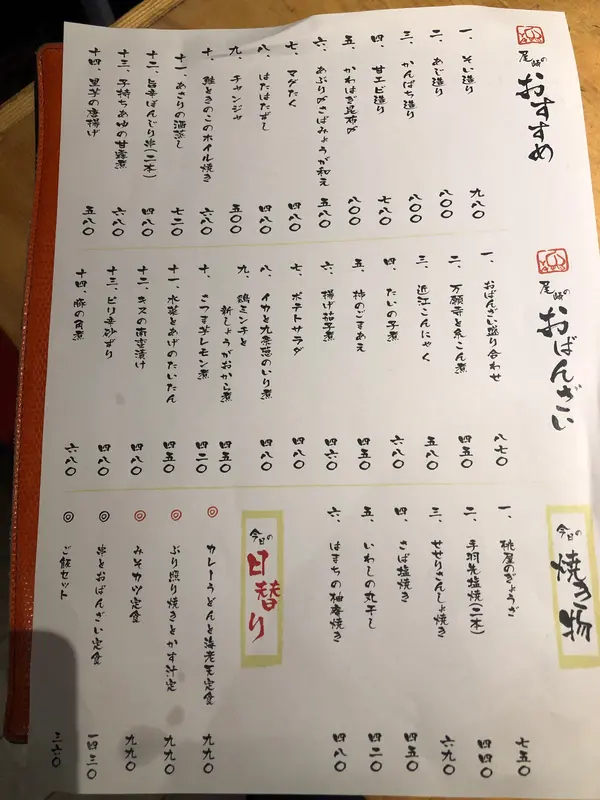 尾崎の
おすすめ
一、そい造り 九八〇
二、あじ造り 八〇〇
三、かんぱち造り 八〇〇
四、甘エビ造り 七八〇
五、かわはぎ昆布〆 八〇〇
六、あぶり〆さばみょうが和え 五八〇
七、マグたく 四八〇
八、はたはたずし 四八〇
九、チャンジャ 五〇〇
十、鮭ときのこのホイル焼き 六八〇
十一、あさりの酒蒸し 七二〇
十二、旨辛ぼんじり串(二本) 四八〇
十三、子持ちあゆの甘露煮 六八〇
十四、里芋の唐揚げ 五八〇
尾崎の
おばんざい
一、おばんざい盛り合わせ 八七〇
二、万願寺と糸こん煮 四五〇
三、近江こんにゃく 五八〇
四、たいの子煮 六八〇
五、柿のごまあえ 四五〇
六、揚げ茄子煮 四六〇
七、ポテトサラダ 四八〇
八、イカと九条葱のいり煮 四八〇
九、鶏ミンチと
新しょうがおから煮 四五〇
十、さつま芋レモン煮 四二〇
十一、水菜とあげのたいたん 四五〇
十二、キスの南蛮漬け 四八〇
十三、ピリ辛砂ずり 四八〇
十四、豚の角煮 六八〇
今日の
焼き物
一、桃屋のぎょうざ 七五〇
二、手羽先塩焼(二本) 四四〇
三、せせりさんしょ焼き 六九〇
四、さば塩焼き 四五〇
五、いわしの丸干し 四二〇
六、はまちの柚庵焼き 四八〇
今日の
日替り
◎ カレーうどんと海老天定食 九九〇
◎ ぶり照り焼きとかす汁定 九九〇
◎ みそカツ定食 九九〇
◎ 串とおばんざい定食 一四三〇
◎ ご飯セット 三六〇